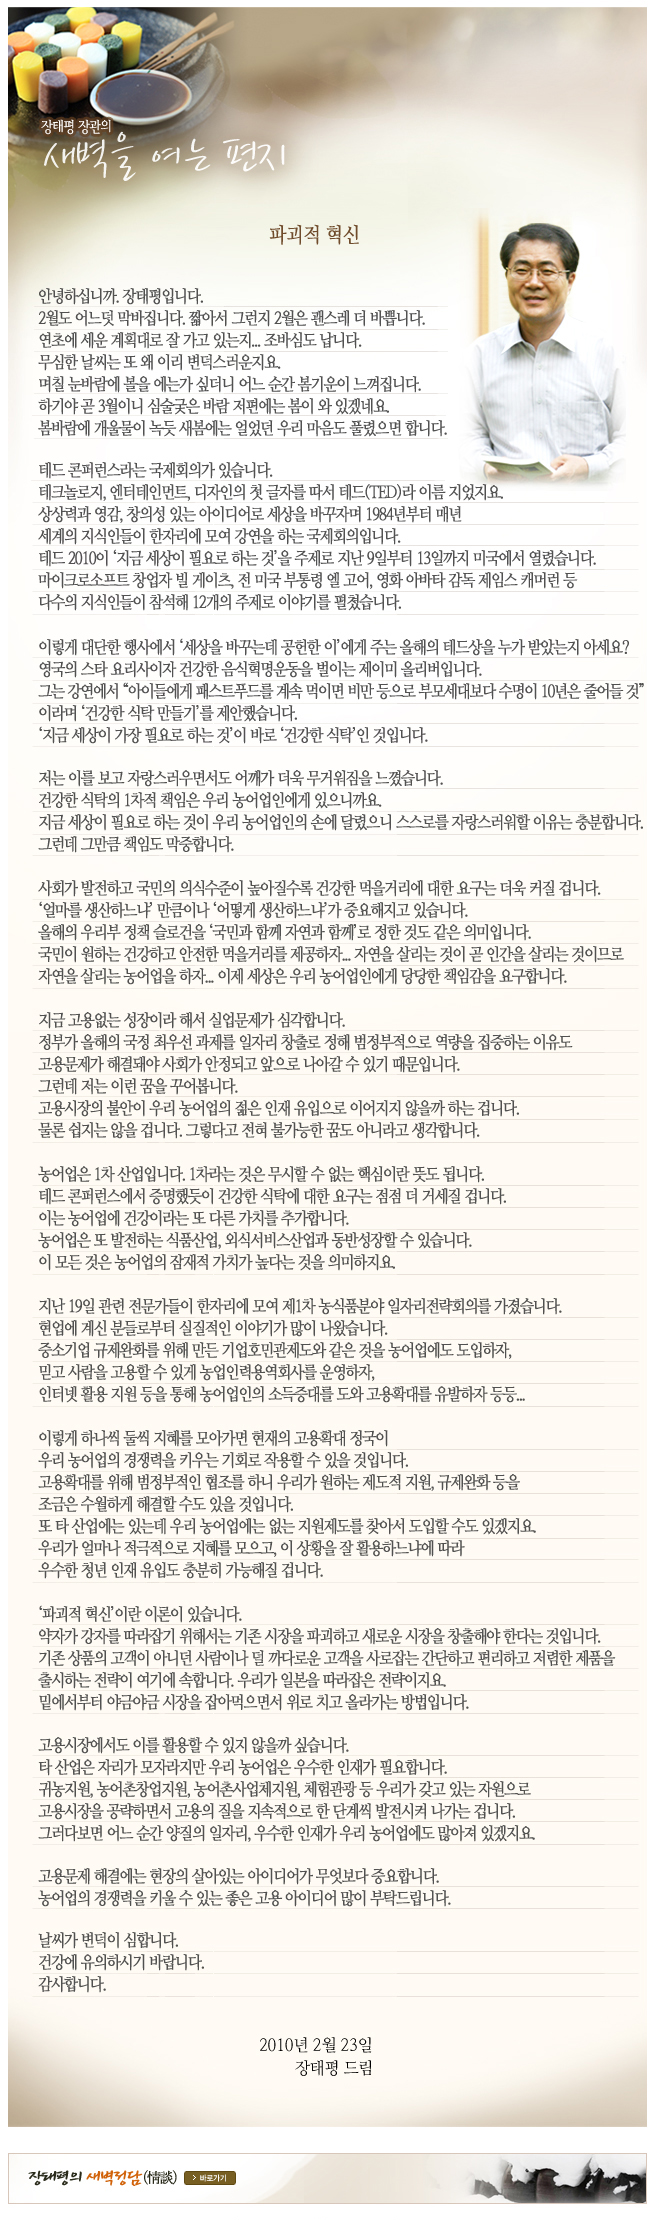 장태평 장관의
새벽을 여는 편지
파괴적 혁신
안녕하십니까. 장태평입니다.
2월도 어느덧 막바집니다. 짧아서 그런지 2월은 괜스레 더 바쁩니다.
연초에 세운 계획대로 잘 가고 있는지... 조바심도 납니다.
무심한 날씨는 또 왜 이리 변덕스러운지요.
며칠 눈바람에 볼을 에는가 싶더니 어느 순간 봄기운이 느껴집니다.
하기야 곧 3월이니 심술궂은 바람 저편에는 봄이 와 있겠네요.
봄바람에 개울물이 녹듯 새봄에는 얼었던 우리 마음도 풀렸으면 합니다.
테드 콘퍼런스라는 국제회의가 있습니다.
테크놀로지, 엔터테인먼트, 디자인의 첫 글자를 따서 테드(TED)라 이름 지었지요.
상상력과 영감, 창의성 있는 아이디어로 세상을 바꾸자며 1984년부터 매년
세계의 지식인들이 한자리에 모여 강연을 하는 국제회의입니다.
테드 2010이 ‘지금 세상이 필요로 하는 것’을 주제로 지난 9일부터 13일까지 미국에서 열렸습니다.
마이크로소프트 창업자 빌 게이츠, 전 미국 부통령 엘 고어, 영화 아바타 감독 제임스 캐머런 등
다수의 지식인들이 참석해 12개의 주제로 이야기를 펼쳤습니다.
이렇게 대단한 행사에서 ‘세상을 바꾸는데 공헌한 이’에게 주는 올해의 테드상을 누가 받았는지 아세요?
영국의 스타 요리사이자 건강한 음식혁명운동을 벌이는 제이미 올리버입니다.
그는 강연에서 “아이들에게 패스트푸드를 계속 먹이면 비만 등으로 부모세대보다 수명이 10년은 줄어들 것”
이라며 ‘건강한 식탁 만들기’를 제안했습니다.
‘지금 세상이 가장 필요로 하는 것’이 바로 ‘건강한 식탁’인 것입니다.
저는 이를 보고 자랑스러우면서도 어깨가 더욱 무거워짐을 느꼈습니다.
건강한 식탁의 1차적 책임은 우리 농어업인에게 있으니까요.
지금 세상이 필요로 하는 것이 우리 농어업인의 손에 달렸으니 스스로를 자랑스러워할 이유는 충분합니다.
그런데 그만큼 책임도 막중합니다.
사회가 발전하고 국민의 의식수준이 높아질수록 건강한 먹을거리에 대한 요구는 더욱 커질 겁니다.
‘얼마를 생산하느냐’ 만큼이나 ‘어떻게 생산하느냐’가 중요해지고 있습니다.
올해의 우리부 정책 슬로건을 ‘국민과 함께 자연과 함께’로 정한 것도 같은 의미입니다.
국민이 원하는 건강하고 안전한 먹을거리를 제공하자... 자연을 살리는 것이 곧 인간을 살리는 것이므로
자연을 살리는 농어업을 하자... 이제 세상은 우리 농어업인에게 당당한 책임감을 요구합니다.
지금 고용없는 성장이라 해서 실업문제가 심각합니다.
정부가 올해의 국정 최우선 과제를 일자리 창출로 정해 범정부적으로 역량을 집중하는 이유도
고용문제가 해결돼야 사회가 안정되고 앞으로 나아갈 수 있기 때문입니다.
그런데 저는 이런 꿈을 꾸어봅니다.
고용시장의 불안이 우리 농어업의 젊은 인재 유입으로 이어지지 않을까 하는 겁니다.
물론 쉽지는 않을 겁니다. 그렇다고 전혀 불가능한 꿈도 아니라고 생각합니다.
농어업은 1차 산업입니다. 1차라는 것은 무시할 수 없는 핵심이란 뜻도 됩니다.
테드 콘퍼런스에서 증명했듯이 건강한 식탁에 대한 요구는 점점 더 거세질 겁니다.
이는 농어업에 건강이라는 또 다른 가치를 추가합니다.
농어업은 또 발전하는 식품산업, 외식서비스산업과 동반성장할 수 있습니다.
이 모든 것은 농어업의 잠재적 가치가 높다는 것을 의미하지요.
지난 19일 관련 전문가들이 한자리에 모여 제1차 농식품분야 일자리전략회의를 가졌습니다.
현업에 계신 분들로부터 실질적인 이야기가 많이 나왔습니다.
중소기업 규제완화를 위해 만든 기업호민관제도와 같은 것을 농어업에도 도입하자,
믿고 사람을 고용할 수 있게 농업인력용역회사를 운영하자,
인터넷 활용 지원 등을 통해 농어업인의 소득증대를 도와 고용확대를 유발하자 등등...
이렇게 하나씩 둘씩 지혜를 모아가면 현재의 고용확대 정국이
우리 농어업의 경쟁력을 키우는 기회로 작용할 수 있을 것입니다.
고용확대를 위해 범정부적인 협조를 하니 우리가 원하는 제도적 지원, 규제완화 등을
조금은 수월하게 해결할 수도 있을 것입니다.
또 타 산업에는 있는데 우리 농어업에는 없는 지원제도를 찾아서 도입할 수도 있겠지요.
우리가 얼마나 적극적으로 지혜를 모으고, 이 상황을 잘 활용하느냐에 따라
우수한 청년 인재 유입도 충분히 가능해질 겁니다.
‘파괴적 혁신’이란 이론이 있습니다.
약자가 강자를 따라잡기 위해서는 기존 시장을 파괴하고 새로운 시장을 창출해야 한다는 것입니다.
기존 상품의 고객이 아니던 사람이나 덜 까다로운 고객을 사로잡는 간단하고 편리하고 저렴한 제품을
출시하는 전략이 여기에 속합니다. 우리가 일본을 따라잡은 전략이지요.
밑에서부터 야금야금 시장을 잡아먹으면서 위로 치고 올라가는 방법입니다.
고용시장에서도 이를 활용할 수 있지 않을까 싶습니다.
타 산업은 자리가 모자라지만 우리 농어업은 우수한 인재가 필요합니다.
귀농지원, 농어촌창업지원, 농어촌사업체지원, 체험관광 등 우리가 갖고 있는 자원으로
고용시장을 공략하면서 고용의 질을 지속적으로 한 단계씩 발전시켜 나가는 겁니다.
그러다보면 어느 순간 양질의 일자리, 우수한 인재가 우리 농어업에도 많아져 있겠지요.
고용문제 해결에는 현장의 살아있는 아이디어가 무엇보다 중요합니다.
농어업의 경쟁력을 키울 수 있는 좋은 고용 아이디어 많이 부탁드립니다.
날씨가 변덕이 심합니다.
건강에 유의하시기 바랍니다.
감사합니다.
2010년 2월 23일
장태평 드림
장태평의 새벽정담(情談) > 바로가기